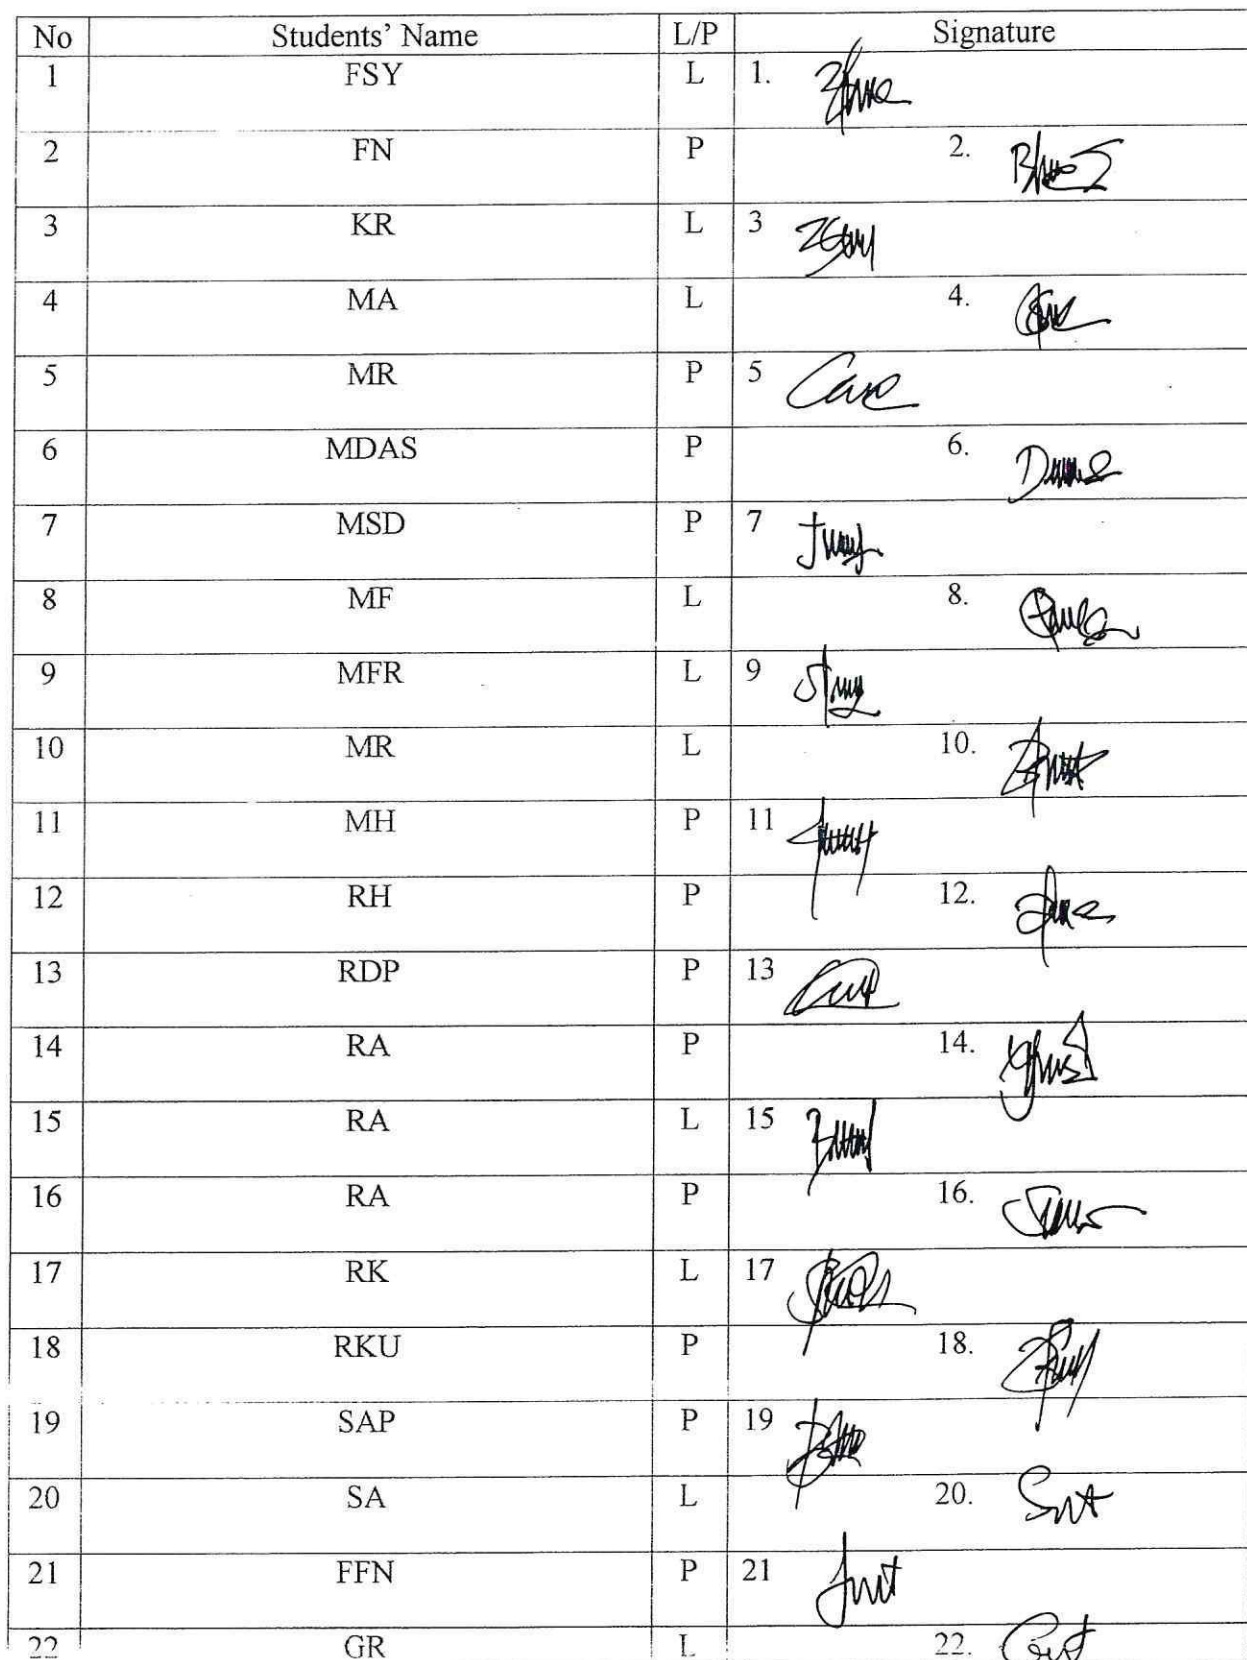 No Students' Name L/P Signature
1 FSY L 1.
2 FN P 2.
3 KR L 3
4 MA L 4.
5 MR P 5
6 MDAS P 6.
7 MSD P 7
8 MF L 8.
9 MFR L 9
10 MR L 10.
11 MH P 11
12 RH P 12.
13 RDP P 13
14 RA P 14.
15 RA L 15
16 RA P 16.
17 RK L 17
18 RKU P 18.
19 SAP P 19
20 SA L 20.
21 FFN P 21
22 GR L 22.